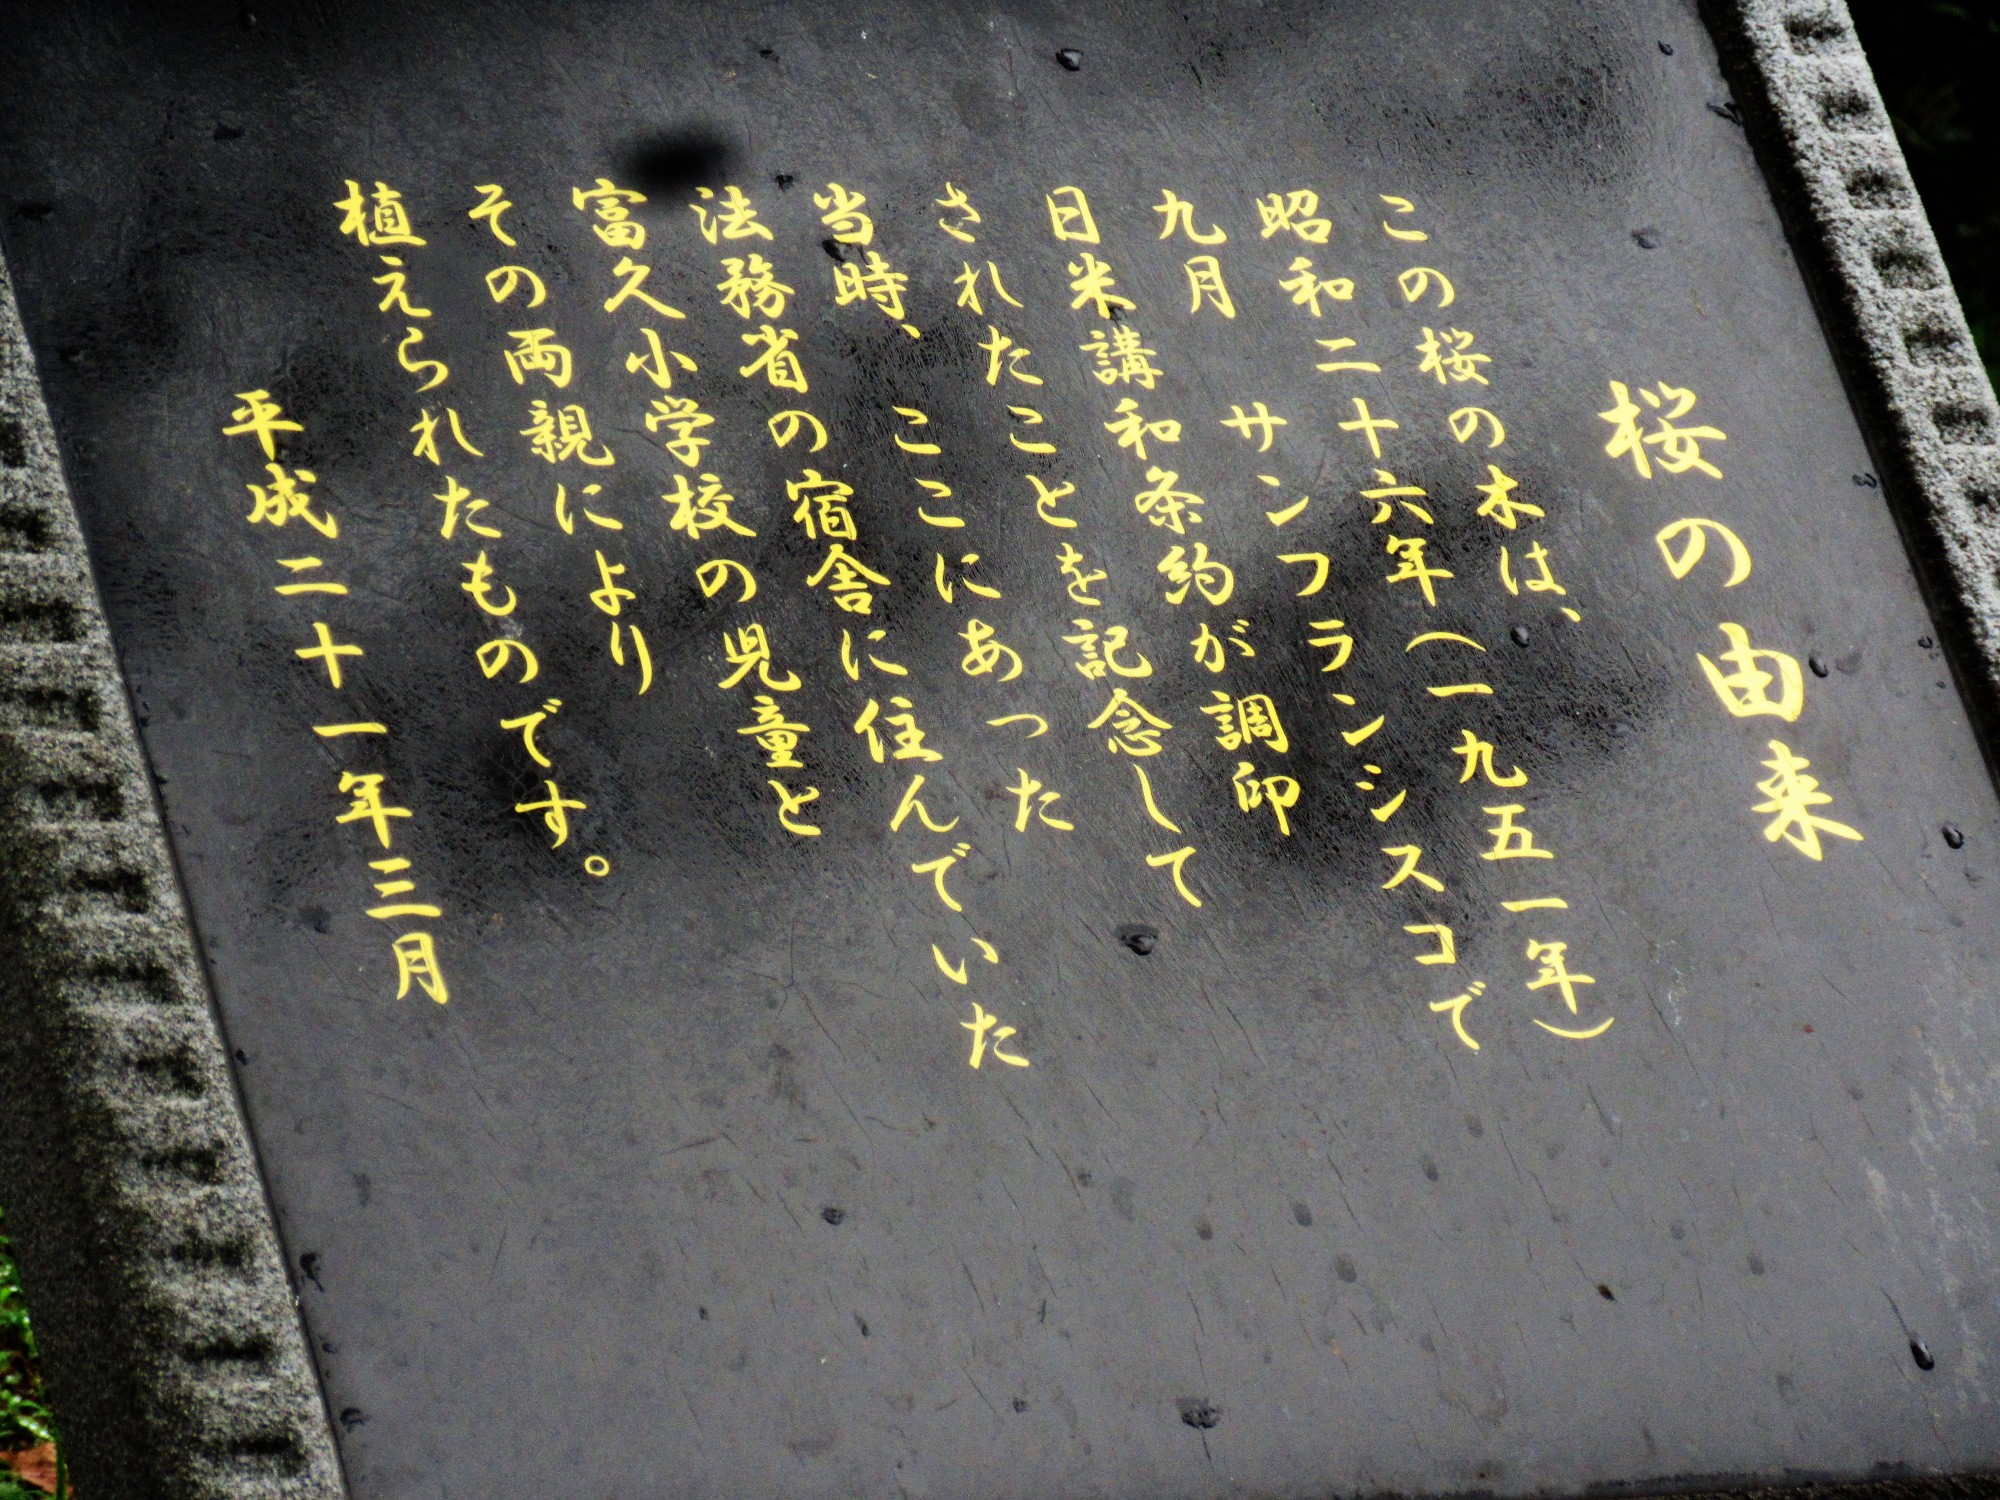 桜の由来
この桜の木は、
昭和二十六年(一九五一年)
九月 サンフランシスコで
日米講和条約が調印
されたことを記念して
当時、ここにあった
法務省の宿舎に住んでいた
富久小学校の児童と
その両親により
植えられたものです。
平成二十一年三月